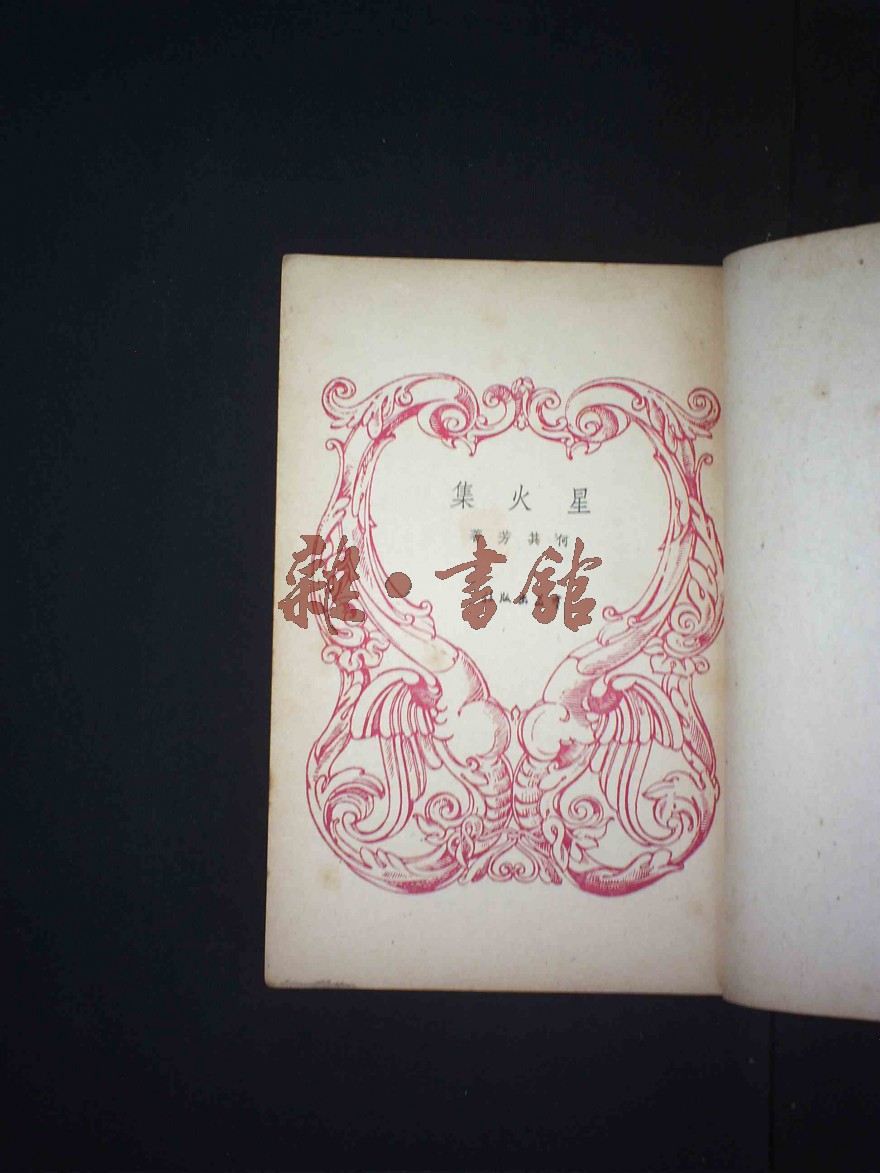 星火集
何其芳著
雜·書館